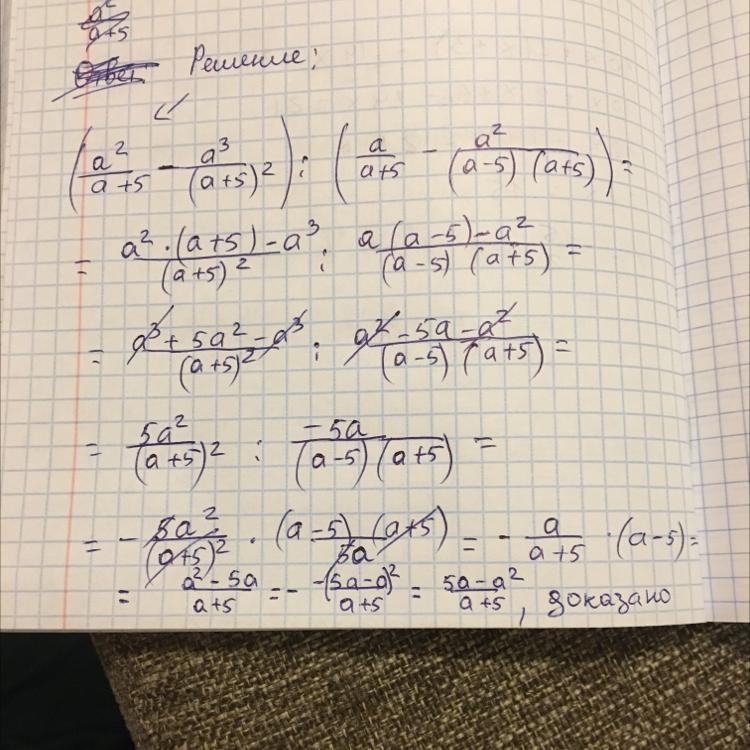 a²/(a+5)
Ответ Решение:
(a²/(a+5) - a³/(a+5)²) : (a/(a+5) - a²/((a-5) (a+5))) =
= (a² · (a+5) - a³)/(a+5)² : (a (a-5) - a²)/((a-5) (a+5)) =
= (a³ + 5a² - a³)/(a+5)² : (a² - 5a - a²)/((a-5) (a+5)) =
= 5a²/(a+5)² : -5a/((a-5) (a+5)) =
= - 5a²/(a+5)² · ((a-5) (a+5))/5a = - a/(a+5) · (a-5) =
= (a² - 5a)/(a+5) = - -(5a-a)²/(a+5) = (5a-a²)/(a+5), доказано